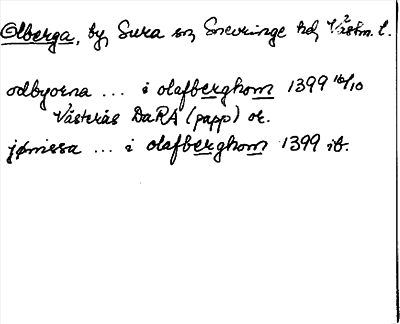 Olberga, by, Sura sn, Snevringe hd, Västm. l.
odbyorna ... i olafberghom 1399 18/10
Västerås DaRA (papp) or.
jønissa ... i olafberghom 1399 ib.